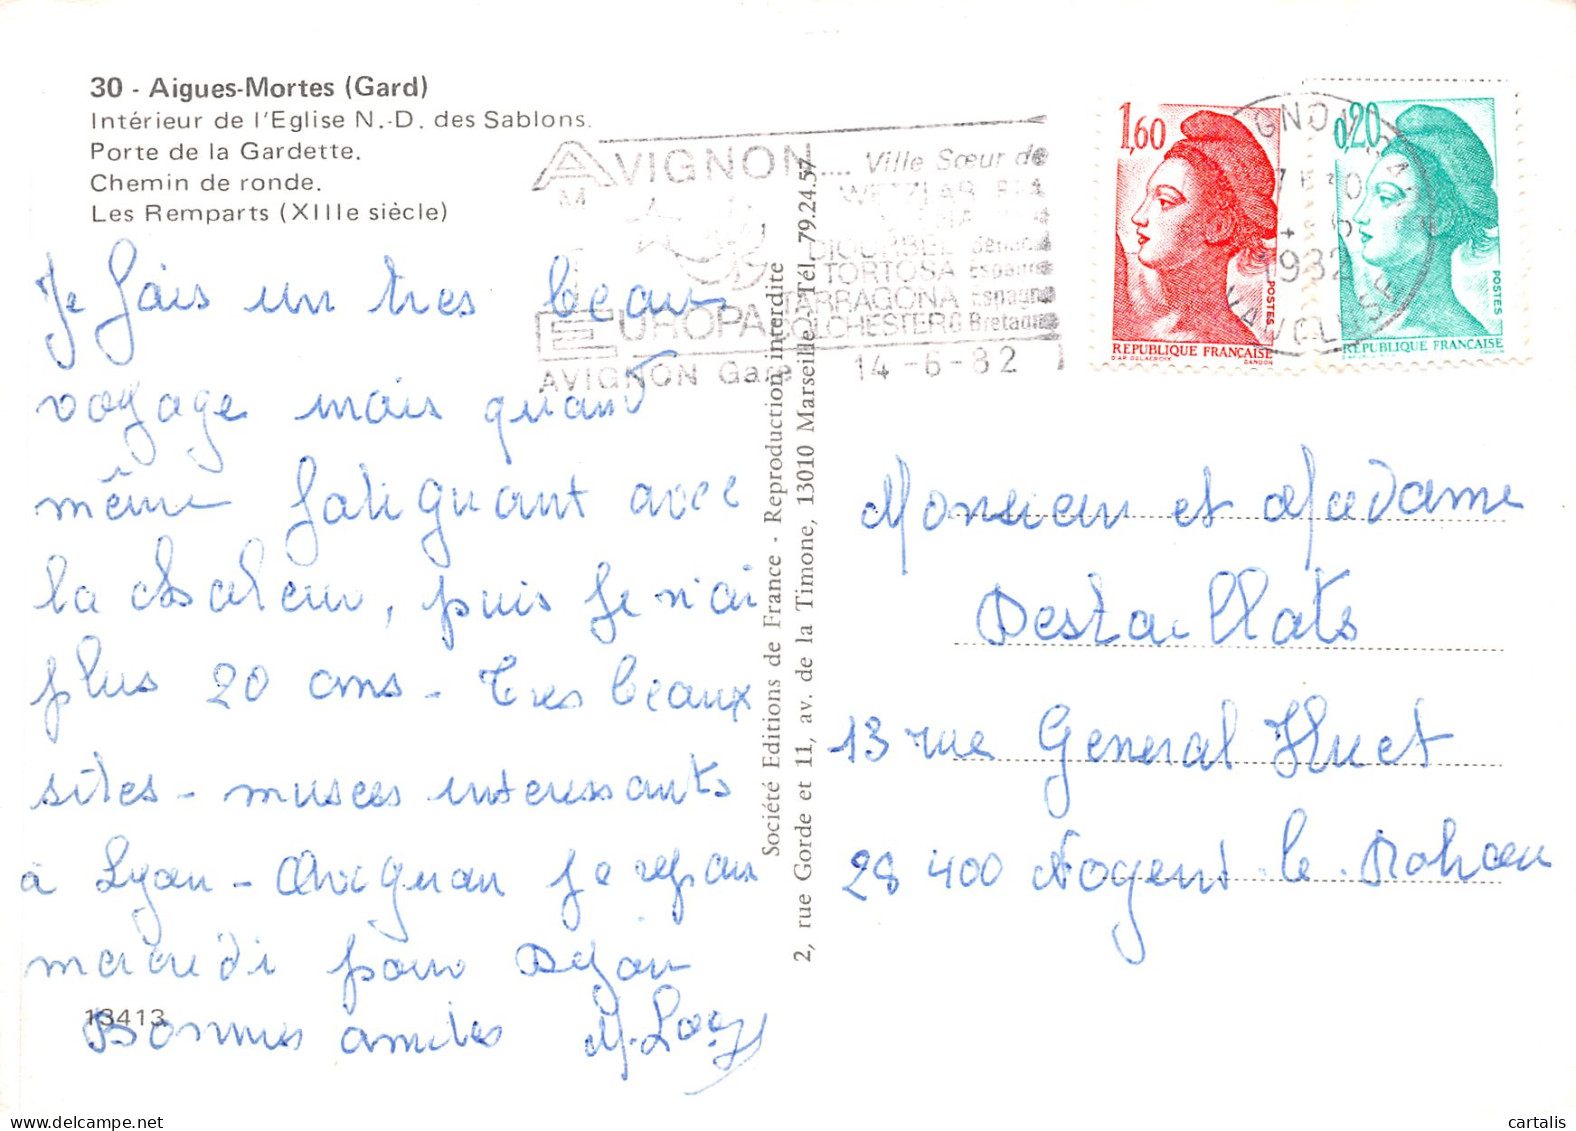 30 - Aigues-Mortes (Gard)
Intérieur de l'Eglise N.-D. des Sablons.
Porte de la Gardette.
Chemin de ronde.
Les Remparts (XIIIe siècle)
Je fais un tres beau
voyage mais quand
même fatiguant avec
la chaleur, puis je n'ai
plus 20 ans - Tres beaux
sites - musees interessants
à Lyon - Avignon je repars
mercredi pour Dijon
Bonnes amities
13413
Société Editions de France - Reproduction interdite
2, rue Gorde et 11, av. de la Timone, 13010 Marseille - Tél. 79.24.57
AVIGNON.... Ville Sœur de
WETZLAR
TORTOSA Espagne
TARRAGONA Espagne
EUROPA COLCHESTER G. Bretagne
AVIGNON Gare 14-6-82
1,60
POSTES
REPUBLIQUE FRANÇAISE
D'AP. DELACROIX GANDON
0,20
POSTES
REPUBLIQUE FRANÇAISE
1982
VAUCLUSE
Monsieur et Madame
Destaillats
13 rue General Huet
28 400 Nogent-le-Rotrou
cartalis